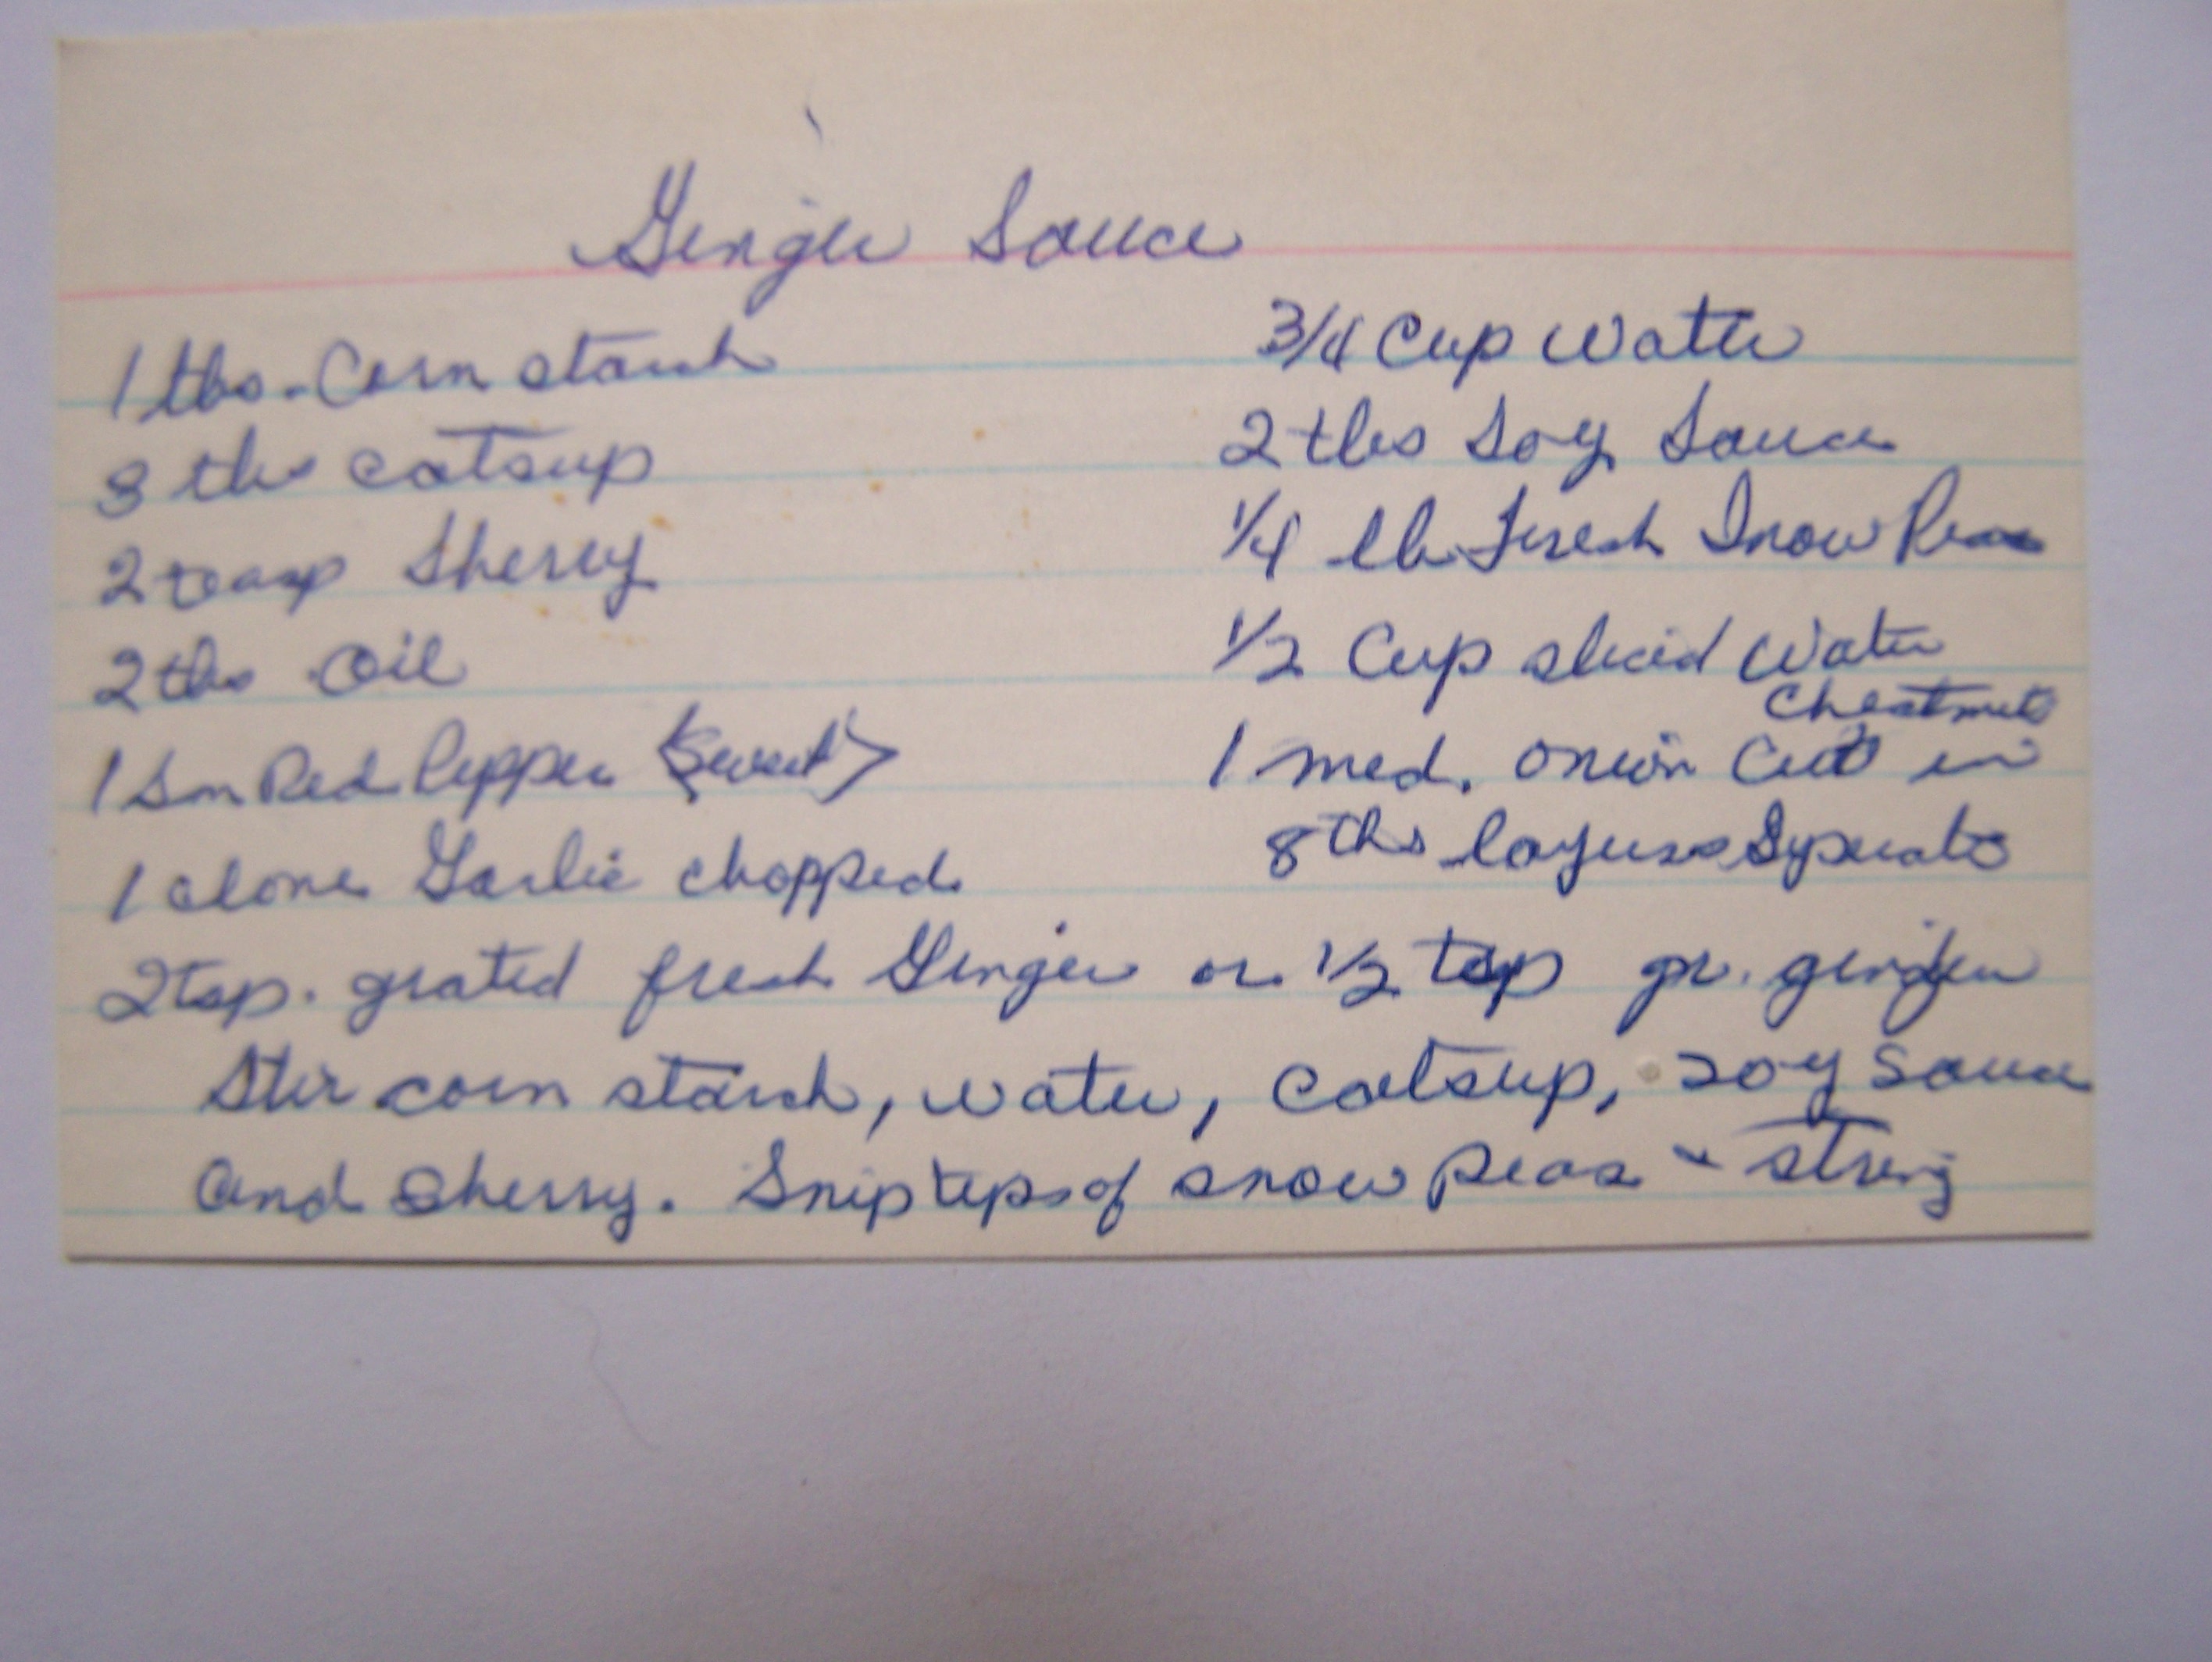 Ginger Sauce
1 tbs. Corn starch
3 tbs catsup
2 teasp Sherry
2 tbs Oil
1 Sm Red Pepper <Sweet>
1 clove Garlic chopped
3/4 Cup Water
2 tbs Soy Sauce
1/4 lb Fresh Snow Peas
1/2 Cup sliced Water
Chestnuts
1 med. onion Cut in
8ths layers Seperate
2 tsp. grated fresh Ginger or 1/2 tsp gr. ginger
Stir corn starch, water, catsup, soy sauce
and sherry. Snip tips of snow peas & string